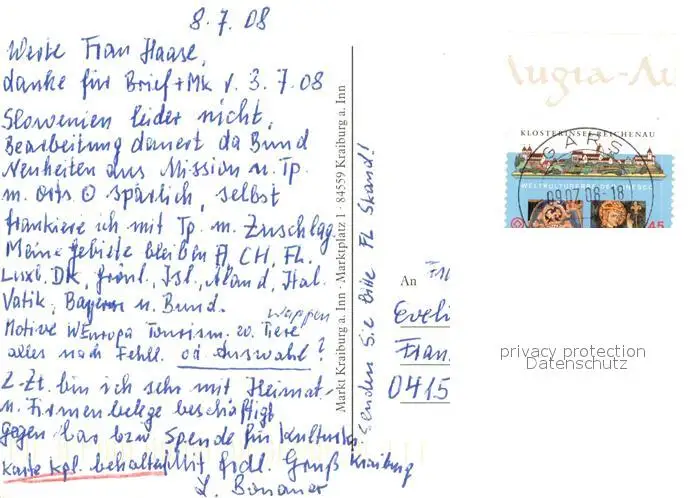 8.7.08
Werte Frau Haase,
danke für Brief + Mk v. 3.7.08
Slowenien leider nicht,
Bearbeitung dauert da Bund
Neuheiten aus Mission u. Tp.
m. Orts O spärlich, selbst
frankiere ich mit Tp. m. Zuschlag.
Meine Gebiete bleiben A, CH, FL.
Luxb. DK, Grönl., Isl., Aland, Ital.
Vatik, Bayern u. Bund.
Wappen
Motive WEuropa Tourism. 20. Tiere
alles nach Fehll. od Auswahl?
Z-Zt. bin ich sehr mit Heimat-
u. Firmenbelege beschäftigt
gegen bar bzw. Spende für
Karte kpl. behalten Mit frdl. Gruß Kraiburg
Markt Kraiburg a. Inn · Marktplatz 1 · 84559 Kraiburg a. Inn
senden Sie bitte FL Skand!
An
Eveli
Fran
0415
Augia-Au
KLOSTERINSEL REICHENAU
GARS
09.07.08-18
WELTKULTURERBE DER UNESCO
45
privacy protection
Datenschutz